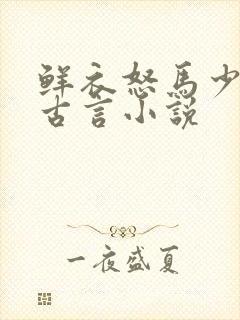 鲜衣怒马少
古言小説
一夜盛夏